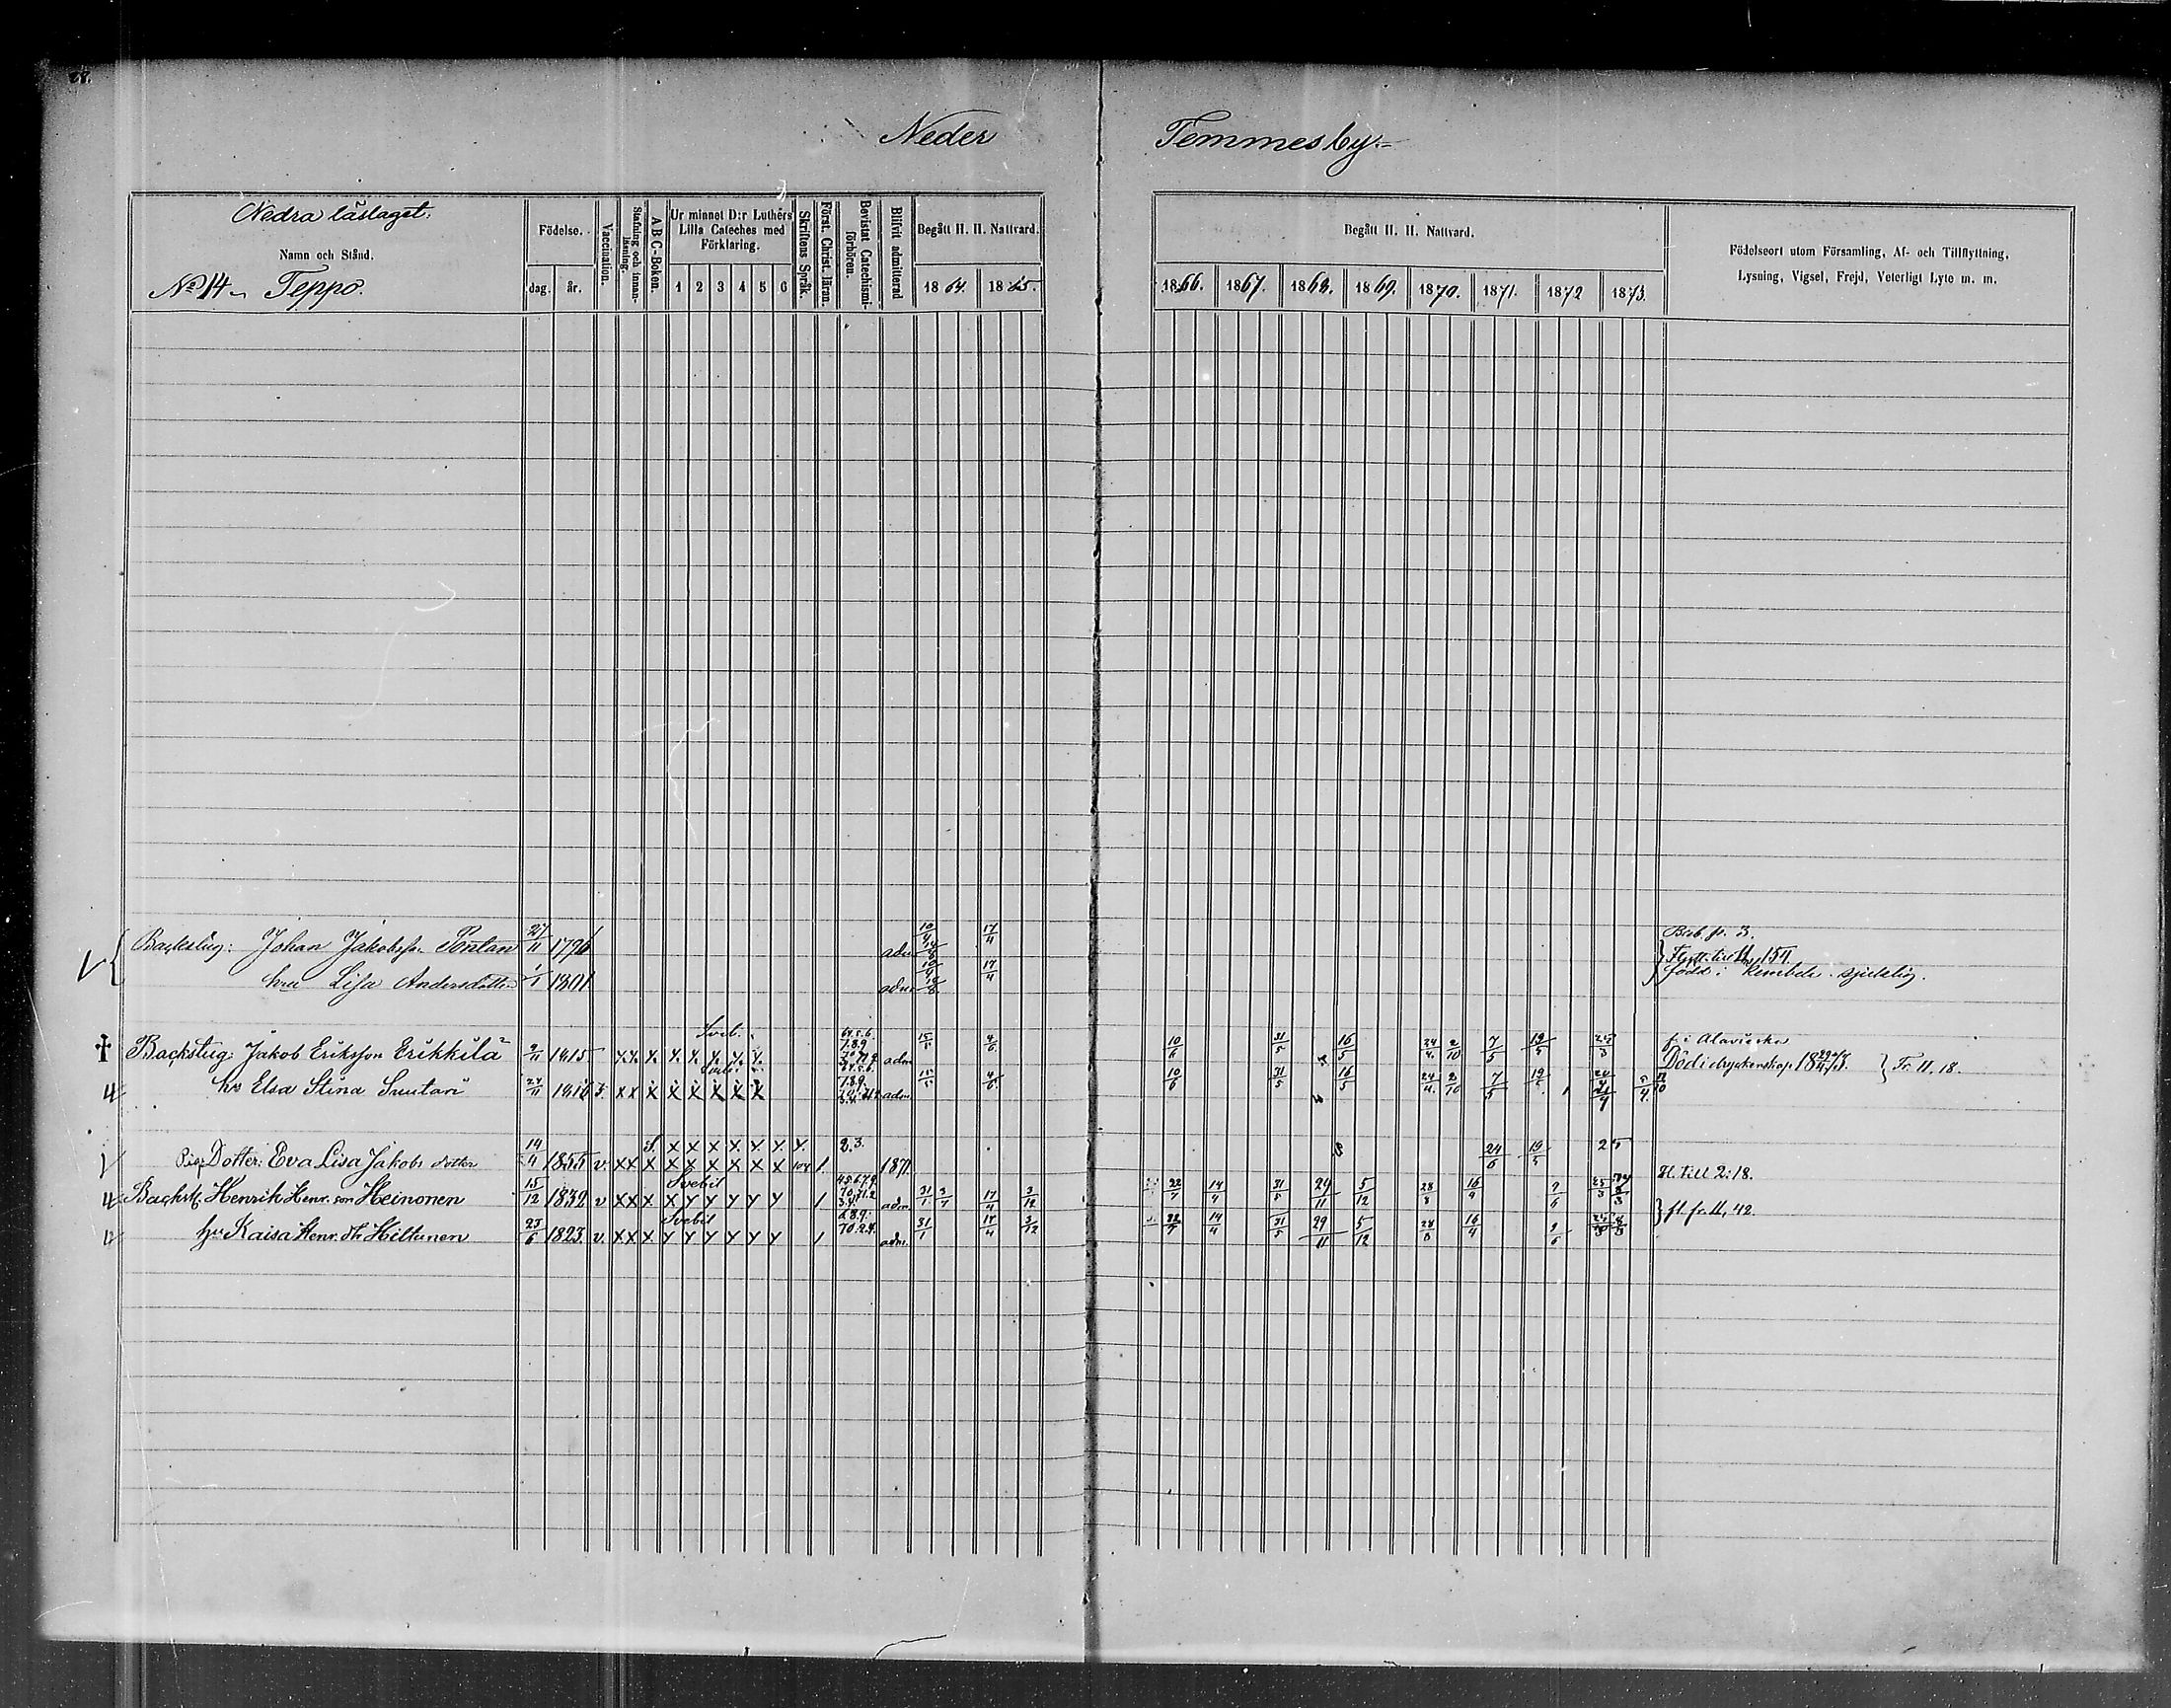 28.
Neder Temmesby.=
Nedra läslaget.
Namn och Stånd.
No 14 Teppo.
Födelse.
dag. år.
Vaccination.
Stafning och innanläsning.
A B C-Boken.
Ur minnet D:r Luthers Lilla Cateches med Förklaring.
1 2 3 4 5 6
Skriftens Språk.
Först. Christ. läran.
Bevistat Catechismiförhören.
Blifvit admitterad
Begått H. H. Nattvard.
1864. 1865.
Begått H. H. Nattvard.
1866. 1867. 1868. 1869. 1870. 1871. 1872 1873.
Födelseort utom Församling, Af- och Tillflyttning,
Lysning, Vigsel, Frejd, Veterligt Lyte m. m.
Backstug: Johan Jakobss. Pontan 27/11 1796 adm 10/4 17/4
Flytt. till 11, 154.
hru Lisa Andersdotter 1/1 1801 adm 10/4 17/4 född i Kembele. sjuklig.
Sveb.
† Backstug: Jakob Eriksson Erikkilä 9/11 1815 x x x x x x x x adm 4/6 10/6 31/5 16/5 24/4 2/10 7/5 19/5 25/3 f. i Alavieska
Död i dryckenskap } Fr. 11. 18.
hu Elsa Stina Suutari 24/11 1816 x x x x x x x x adm 4/6 10/6 31/5 16/5 24/4 2/10 7/5 19/5
Pig. Dotter: Eva Lisa Jakobs dotter 14/4 1855 v. x x x x x x x x x 2.3. 1871. 24/6 19/5 25 fl. till 2: 18.
Svebil
Backst. Henrik Henr. son Heinonen 15/12 1832 v x x x x y y y y y / adm 31/1 17/4 3/12 22/7 14/4 31/5 29/11 5/12 28/8 16/4 9/6 25/3
} fl. fr. 11, 42.
Svebil
hu Kaisa Henr. dtr Hiltunen 25/6 1823. v. x x x y y y y y y / 70.2.4. adm. 31/1 17/4 3/12 22/7 14/4 31/5 29/11 5/12 28/8 16/4 9/6